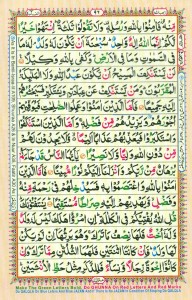 مِّنْهُ فَاٰمِنُوْا بِاللّٰهِ وَرُسُلِهٖ وَلَا تَقُوْلُوْا ثَلٰثَةٌ اِنْتَهُوْا خَيْرًا
لَّكُمْ اِنَّمَا اللّٰهُ اِلٰهٌ وَّاحِدٌ سُبْحٰنَهٗٓ اَنْ يَّكُوْنَ لَهٗ وَلَدٌ لَهٗ مَا
فِى السَّمٰوٰتِ وَمَا فِى الْاَرْضِ وَكَفٰى بِاللّٰهِ وَكِيْلًا لَنْ
يَّسْتَنْكِفَ الْمَسِيْحُ اَنْ يَّكُوْنَ عَبْدًا لِّلّٰهِ وَلَا الْمَلٰٓئِكَةُ
الْمُقَرَّبُوْنَ وَمَنْ يَّسْتَنْكِفْ عَنْ عِبَادَتِهٖ وَيَسْتَكْبِرْ فَسَيَحْشُرُهُمْ
اِلَيْهِ جَمِيْعًا فَاَمَّا الَّذِيْنَ اٰمَنُوْا وَعَمِلُوا الصّٰلِحٰتِ
فَيُوَفِّيْهِمْ اُجُوْرَهُمْ وَيَزِيْدُهُمْ مِّنْ فَضْلِهٖ وَاَمَّا الَّذِيْنَ اسْتَنْكَفُوْا
وَاسْتَكْبَرُوْا فَيُعَذِّبُهُمْ عَذَابًا اَلِيْمًا وَّلَا يَجِدُوْنَ لَهُمْ
مِّنْ دُوْنِ اللّٰهِ وَلِيًّا وَّلَا نَصِيْرًا يٰٓاَيُّهَا النَّاسُ قَدْ جَآءَكُمْ
بُرْهَانٌ مِّنْ رَّبِّكُمْ وَاَنْزَلْنَآ اِلَيْكُمْ نُوْرًا مُّبِيْنًا فَاَمَّا الَّذِيْنَ
اٰمَنُوْا بِاللّٰهِ وَاعْتَصَمُوْا بِهٖ فَسَيُدْخِلُهُمْ فِيْ رَحْمَةٍ مِّنْهُ
وَفَضْلٍ وَّيَهْدِيْهِمْ اِلَيْهِ صِرَاطًا مُّسْتَقِيْمًا يَسْتَفْتُوْنَكَ قُلِ اللّٰهُ
يُفْتِيْكُمْ فِى الْكَلٰلَةِ اِنِ امْرُؤٌا هَلَكَ لَيْسَ لَهٗ وَلَدٌ وَّلَهٗٓ
اُخْتٌ فَلَهَا نِصْفُ مَا تَرَكَ وَهُوَ يَرِثُهَآ اِنْ لَّمْ يَكُنْ لَّهَا
وَلَدٌ فَاِنْ كَانَتَا اثْنَتَيْنِ فَلَهُمَا الثُّلُثٰنِ مِمَّا تَرَكَ وَاِنْ
كَانُوْٓا اِخْوَةً رِّجَالًا وَّنِسَآءً فَلِلذَّكَرِ مِثْلُ حَظِّ الْاُنْثَيَيْنِ